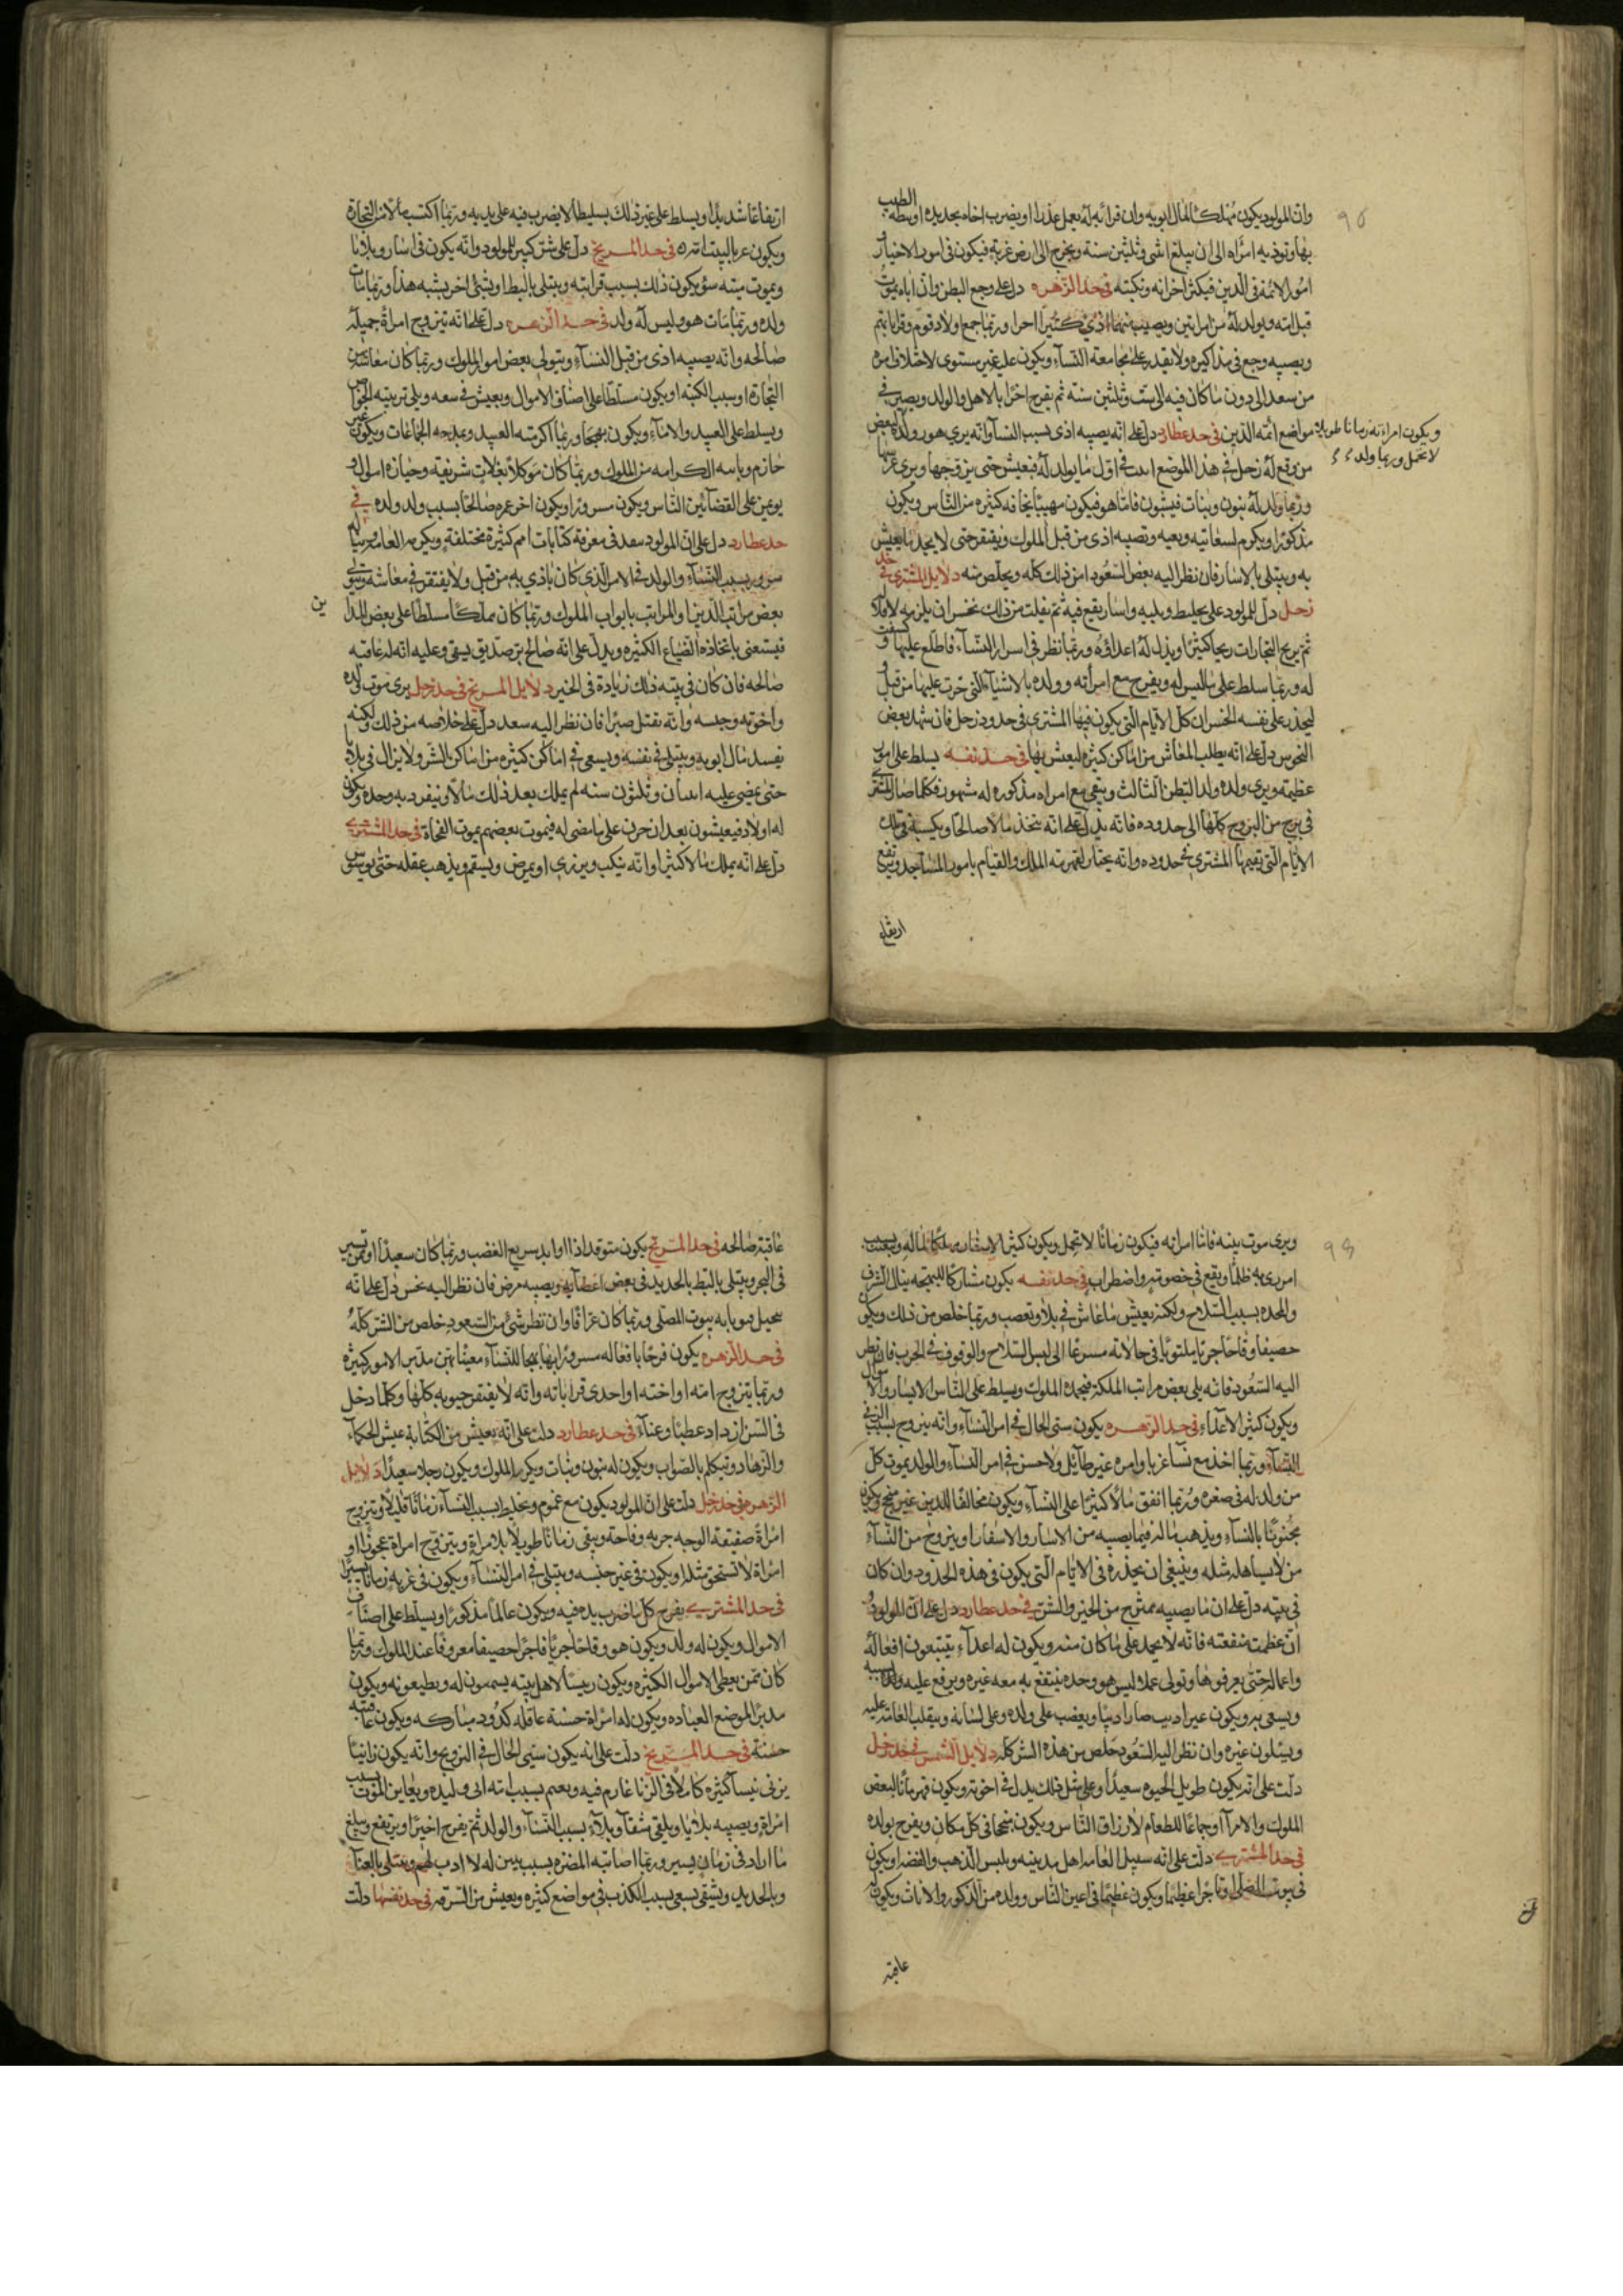 وان المولود يكون مهلكا لمال ابويه وان قرابه له يعمل عذرا او يضرب اخاه بحديده او بطه الطبيب
بها وتوذيه امراه الى ان يبلغ اثنى وثلثين سنة ويخرج الى ارض غربة فيكون في امور الاخيار و
امور الائمة في الدين فيكثر احزانه ونكبته في حد الزهره دل على وجع البطن وان اباه يموت
قبل امه ويولد له من امراتين ويصيب منهما اذي كثيرا احرا وربما جمع اولاد قوم وقرابا يتم
ويصيبه وجع في مذاكيره ولا يقدر على مجامعة النساء ويكون عليه غير مستوى لاختلاف امره
من سعد الى دون ما كان فيه الى ست وثلثين سنة ثم يفرح اخرا بالاهل والولد ويصير في
مواضع ائمة الدين في حد عطارد دل على انه يصيبه اذى بسبب النسا وانه يرى هو ولده لبعض
ويكون امراته زمانا طويلا
لا تحمل وربما ولد
من وقع له زحل في هذا الموضع في اول ما يولد له فيعيش حتى يزوجها ويرى عرسها
وربما ولد له بنون وبنات فيشبون فاما هو فيكون مهيبا يخافه كثيره من الناس ويكون
مذكورا ويكرم لسغايته وبعيه وتصيبه اذى من قبل الملوك ويفتقر حتى لا يجد ما يعيش
به ويبتلى بالاسار فان نظر اليه بعض السعود امن ذلك كله ويخلص منه دلايل المشترى في حد
زحل دل المولود على تخليط وبليه واسار يقع فيه ثم يفلت من ذلك بخسران يلزمه لا محالة
ثم يربح التجارات ربحا كثيرا ويذل له اعداؤه وربما نظر في اسرار النساء فاطلع عليها وكشفت
له وربما سلط على ما ليس له ويفرح مع امراته وولده بالاشياء التي حزن عليها من قبل و
ليحذر على نفسه الخسران كل الايام التي يكون فيها المشترى في حدود زحل فان شهد بعض
النحوس دل على انه يطلب المعاش من اماكن كثيره ليعيش بها في حد نفسه يسلط على امور
عظيمة ويرى ولده ولد البطن الثالث ويبقى مع امراه مذكوره له مشهور فكلما صار المشترى
في برج من البروج كلها الى حدوده فانه يدل على انه يتخذ مالا صالحا ويكسبه في تلك
الايام التي يقيمها المشترى في حدوده وانه يختار لقهرمة الملك والقيام بامور المساجد ويرتفع
ارتفاعا
ارتفاعا شديدا ويسلط على غير ذلك بسليطا لا يضرب فيه على يديه وربما اكتسب مالا من التجارة
ويكون عربا لبيت في حد المريخ دل على شر كبير للمولود وانه يكون في اسار وبلايا
ويموت ميتة سؤ يكون ذلك بسبب قرابته ويبتلى بالبط او بشئ اخر يشبه هذا وربما مات
ولده وربما مات هو وليس له ولد في حد الزهره دل على انه يتزوج امراة جميلة
صالحه وانه يصيبه اذى من قبل النساء ويتولى بعض امور الملوك وربما كان معاشه من
التجارة او سبب الكتبه او يكون مسلطا على اصناف الاموال ويعيش في سعه ويلى تربيته الخواص
ويسلط على العبيد والاماء ويكون بهيجا وربما اكرمته العبيد ومدحه الجماعات ويكون غير
حازم وياسه الكرامه من الملوك وربما كان موكلا بغلات شريفه وحيازه اموال و
يومن على القضا بين الناس ويكون مسرورا ويكون اخر عمره صالحا بسبب ولد ولده في
حد عطارد دل على ان المولود سعد في معرفة كتابات امم كثيرة مختلفة ويكرم العامه وربما له
سرور بسبب النساء والولد في الامر الذي كان ياذي به من قبل ولا يفتقر في معاشه ويتولى
بعض مراتب الدين او المراتب بابواب الملوك وربما كان مملكا مسلطا على بعض المدا ين
فيستغنى باتخاذه الضياع الكثيره ويدل على انه صالح بر صديق يبقى وعليه انه له عاقبه
صالحه فان كان في بيته ذلك زيادة في الخير دلايل المريخ في حد زحل يرى موت ولده
واخوته وحبسه وانه يقتل صبرا فان نظر اليه سعد دل على خلاصه من ذلك ولكنه
يفسد مال ابويه ويبتلى في نفسه ويسعى في اماكن كثيره من اماكن الشر ولا يزال في بلايا
حتى يمضى عليه اثنان وثلثون سنه لم يملك بعد ذلك مالا وينفرد به وحده ويكون
له اولاد فيعيشون بعد ان حزن على ما مضى له فيموت بعضهم بموت الفجاة في حد المشترى
دل على انه يملك مالا كثيرا وانه ينكب ويزرى او يمرض ويسقم ويذهب عقله حتى يوسوس
ويرى موت بنيه فاما امراته فيكون زمانا لا تحمل ويكون كثير الاسفار مهلكا لماله ويعتب بسبب
امر يرى به ظلما ويقع في خصومة واضطراب في حد نفسه يكون مشاركا للبهجة ينال الشرف
والمحمده بسبب السلاح ولكنه يعيش ما عاش في بلا وتعصب وربما خلص من ذلك ويكون
حصيفا وقاحا جريا ملتويا في حالاته مسرعا الى لبس السلاح والوقوف في الحرب فان نظر
اليه السعود فانه يلى بعض مراتب الملكة فيحمده الملوك ويسلط على الناس الايسار والاموال
ويكون كثير الاعداء في حد الزهره يكون سئ الحال في امر النساء وانه يتزوج بسبب الزنى
النساء وربما اخذ مع نساء غربا وامره غير طائل ولا حسن في امر النساء والولد يموت كل
من ولد له في صغره وربما انفق مالا كثيرا على النساء ويكون مخالفا للدين غير منجح ويكون
مجنونا بالنساء ويذهب ماله فيما يصيبه من الاسار والاسفار او يتزوج من النساء
من لا يساهله مثله وينبغى ان يحذره في الايام التي يكون في هذه الحدود وان كان
في بيته دل على ان ما يصيبه ممتزج من الخير والشر في حد عطارد دل على ان المولود
ان عظمت منفعته فانه لا يحمد على ما كان منه ويكون له اعداء يتتبعون افعاله
واعماله حتى يعرفوها وتولى عملا ليس هو وحده ينتفع به معه غيره ويرفع عليه ولده بسببه
ويسعى به ويكون غير اديب صارا دنيا ويغضب على ولده وعلى لسانه وينقلب العامة عليه
ويبتلون غيره وان نظر اليه السعود خلص من هذه الشر كله دلايل الشمس في حد زحل
دلت على انه يكون طويل الحيوه سعيدا وعلى مثل ذلك يدل في اخوته ويكون قهرمانا لبعض
الملوك والامراء او جماعا للطعام لارزاق الناس ويكون منجحا في كل مكان ويفرح بولده
في حد المشترى دلت على انه سبيل العامه اهل مدينته ويلبس الذهب والفضه او يكون
في بيوت المصلى او تاجرا عظيما ويكون عظيما في اعين الناس وولده من الذكور والاناث ويكون له
عاقبة
عاقبة صالحه في حد المريخ يكون متوقدا ذا اوابد سريع الغضب وربما كان سعيدا او ممن يسير
في البحر ويبتلى بالبط بالحديد في بعض اعضايه ويصيبه مرض فان نظر اليه نحس دل على انه
بيوت المصلى وربما كان عرافا وان نظر شئ من السعود خلص من الشر كله
في حد الزهره يكون فرحا بافعاله مسرورا بها بهجا للنساء معينا بمن مدبر لامور كثيره
وربما يتزوج امته او اخته او احدى قراباته وانه لا يفتقر حيوته كلها وكلما دخل
في السن ازداد عطبا وعناء في حد عطارد دلت على انه يعيش من الكتابة عيش الحكماء
والزهاد ويتكلم بالصواب ويكون له بنون وبنات ويكرم الملوك ويكون رجلا سعيدا دلايل
الزهره في حد زحل دلت على ان المولود يكون مع غموم وتخليط بسبب النساء زمانا قليلا ويتزوج
امراة صفيقة الوجه جريه وقاحة ويبقى زمانا طويلا بلا مراة ويتزوج امراة عجوزا او
امراة لا تستحق مثله او يكون في غير جنسه ويبتلى في امر النساء ويكون في غربه زمانا يسيرا
في حد المشترى يفرح كل ما ضرب يده فيه ويكون عالما مذكورا ويسلط على اصناف
الاموال ويكون له ولد ويكون هو وقاحا جريا فاجرا حصيفا معروفا عند الملوك وربما
كان ممن يعطى الاموال الكثيره ويكون رييسا لاهل بيته يسمعون له ويطيعونه ويكون
مدبرا لموضع العباده ويكون له امراة حسنة عاقله كدود مباركه ويكون عاقبته
حسنة في حد المريخ دلت على انه يكون سئ الحال في التزويج وانه يكون زانيا
يزنى بنساء كثيره كاملا في الزنا غارم فيه ويغم بسبب امته التي وليده ويعاين الموت بسبب
امراة ويصيبه بلايا ويلقى شقاء وبلاء بسبب النساء والولد ثم يفرح اخيرا ويرتفع ويبلغ
ما اراد في زمان يسير وربما اصابته المضره بسبب بنين له لا ادب لهم ويبتلى بالعناء
وبالحديد ويشقى يسعى بسبب الكذب في مواضع كثيره ويعيش من السرقه في حد نفسها دلت